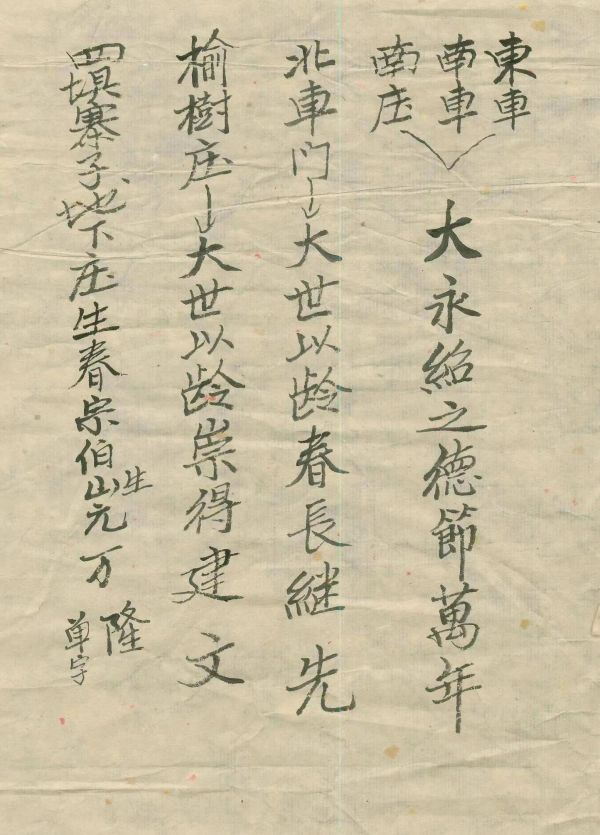 東車
南車
南庄
大永紹之德節萬年
北車門大世以龄春長継先
榆樹庄大世以龄崇得建文
四埧寨子地下庄生春宗伯山元万
生
隆
单字